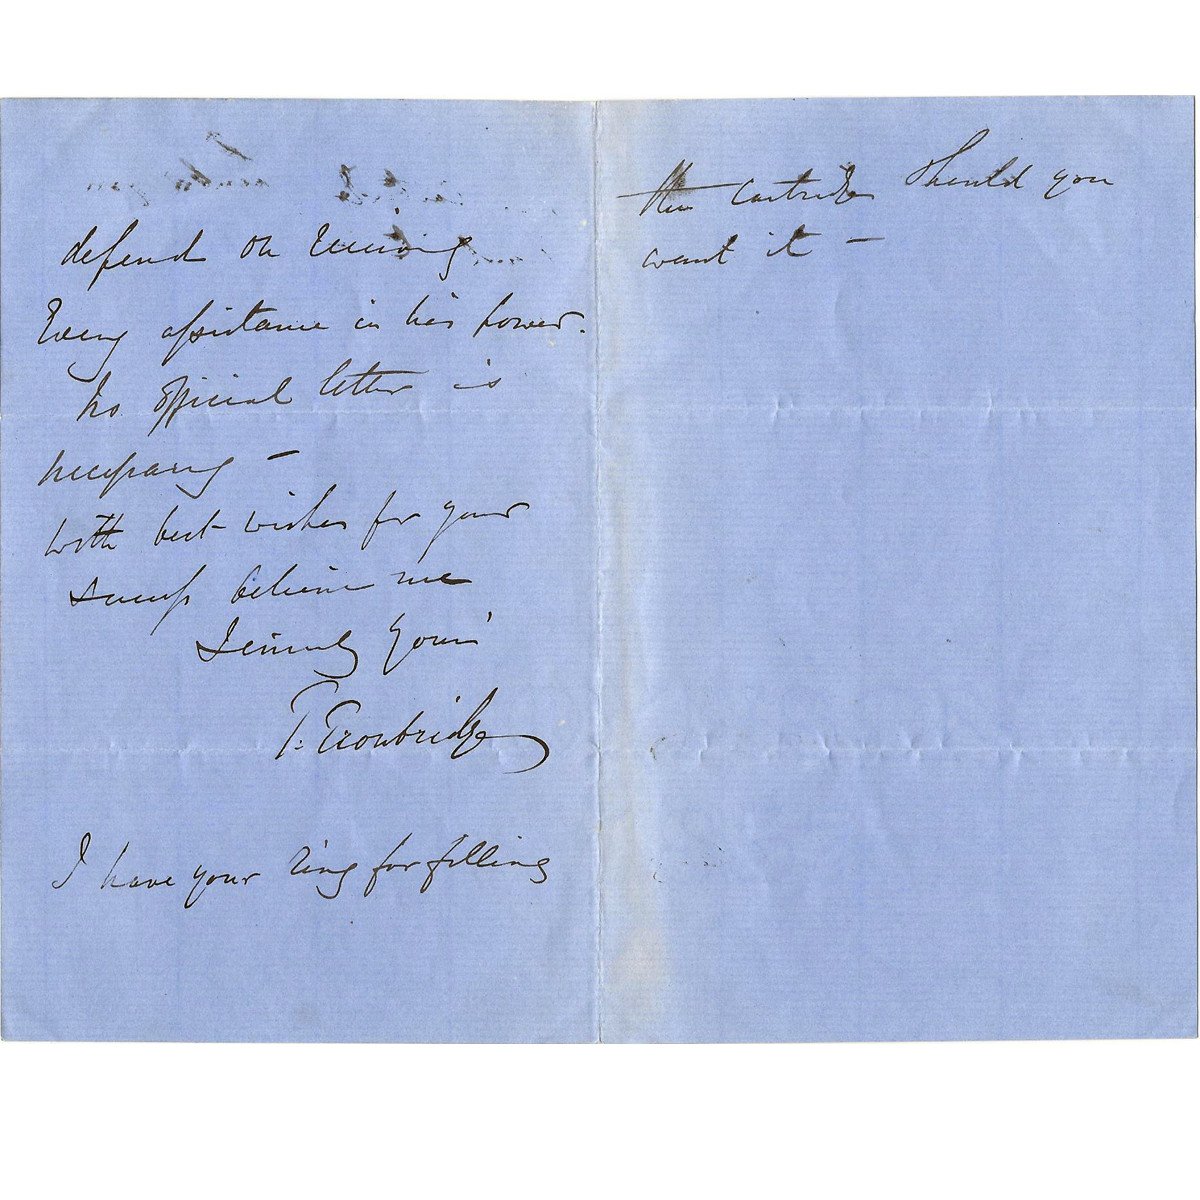 depend on receiving
Every assistance in his power.
No official letter is
necessary —
With best wishes for your
success believe me
Sincerely Yours
T. Trowbridge
I have your ring for filling
the cartridge Should you
want it —